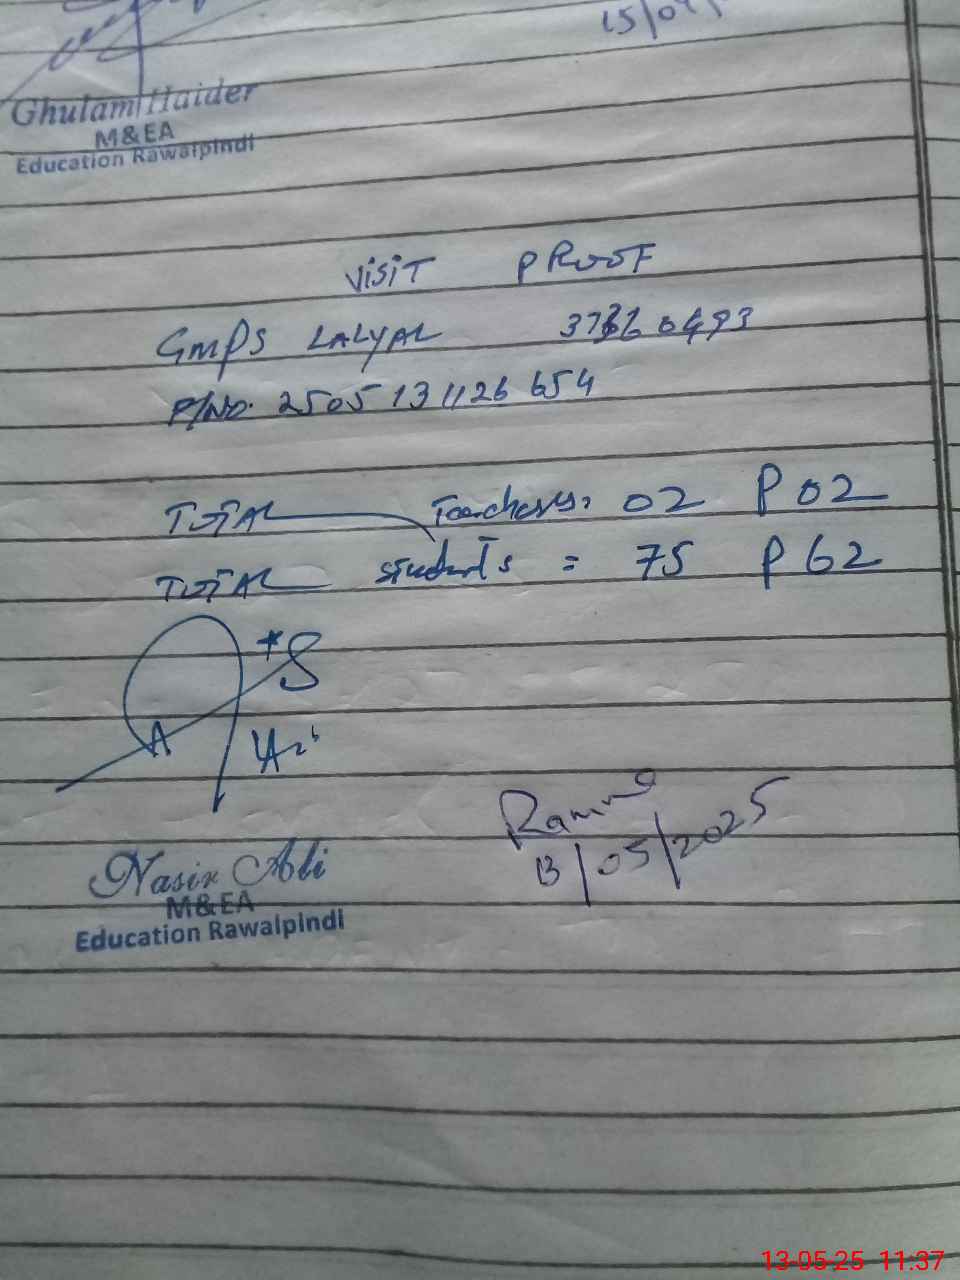 15/04/
Ghulam Haider
M&EA
Education Rawalpindi
VISIT PROOF
GMPS LALYAL 37360493
P/NO. 250513 1126 654
TOTAL Teachers: 02 P 02
TOTAL students = 75 P 62
13/05/2025
Nasir Ali
M&EA
Education Rawalpindi
13-05-25 11:37